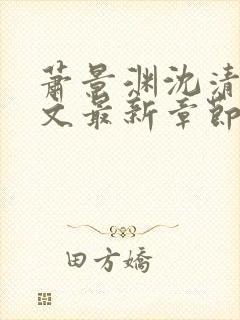 萧景渊沈清
文最新章節
田方嬌